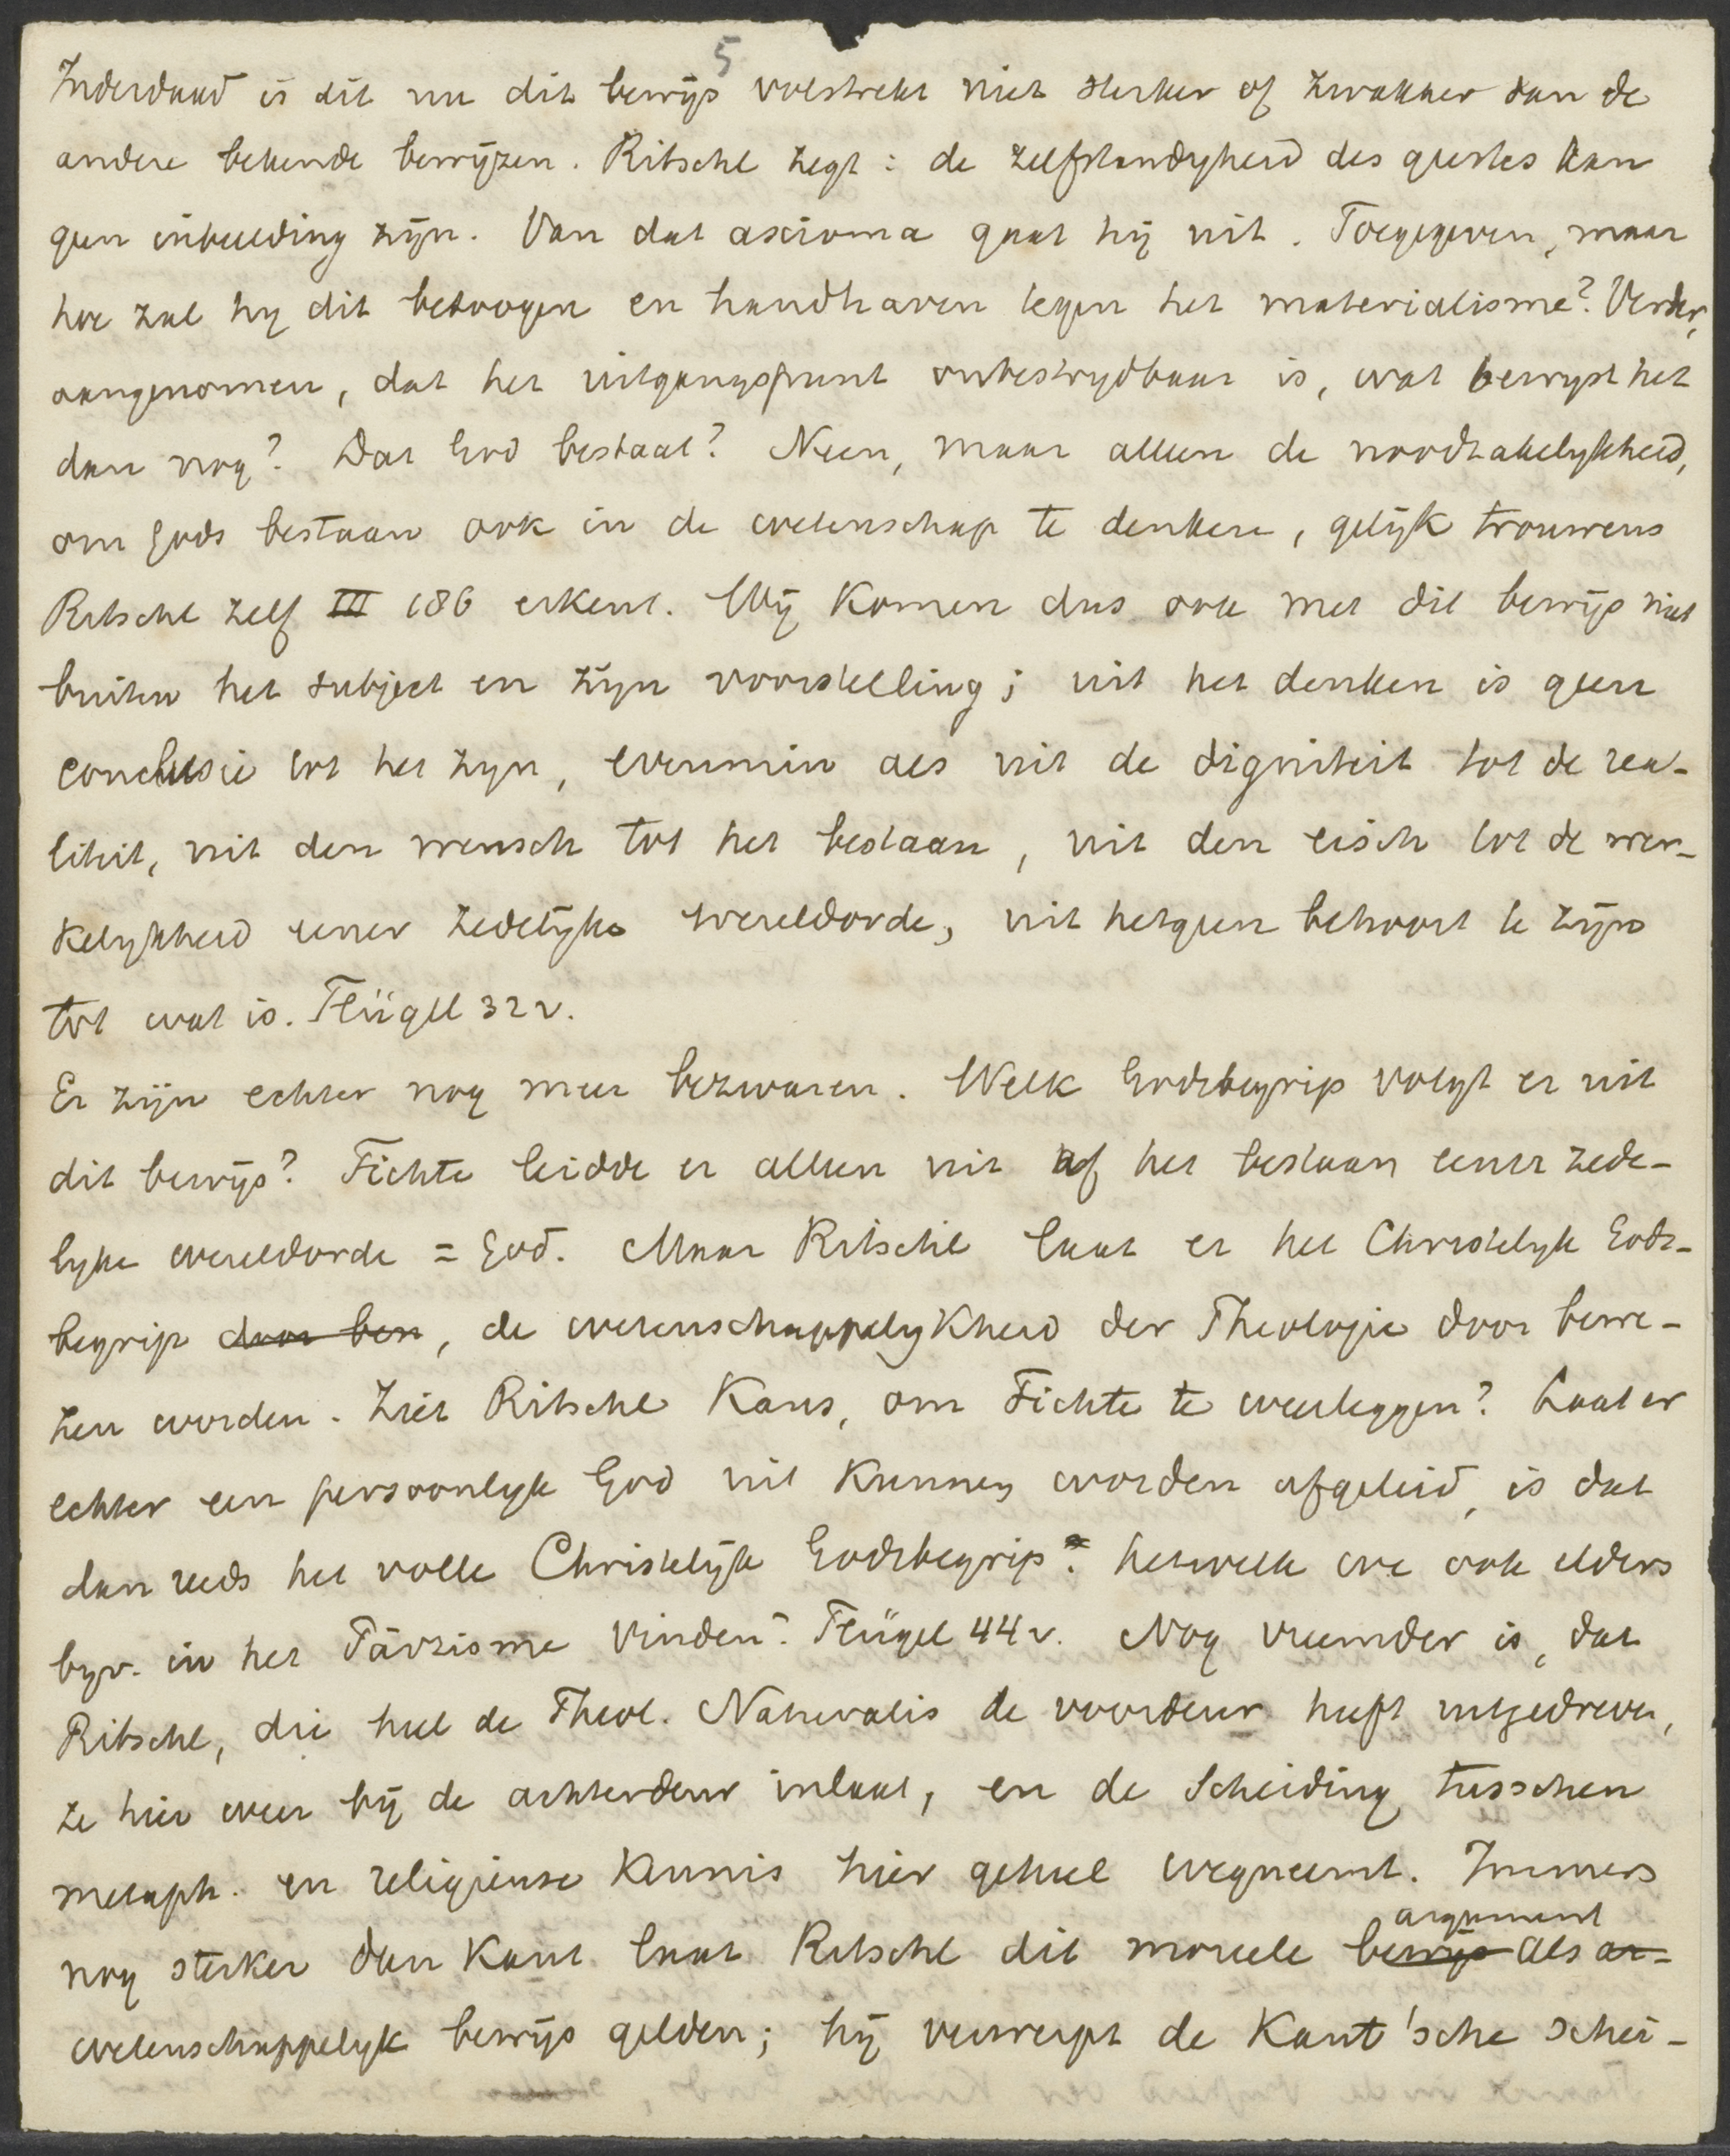 5
Inderdaad is dit nu dit bewijs volstrekt niet sterker of zwakker dan de
andere bekende bewijzen. Ritschl zegt: de zelfstandigheid des geestes kan
geen inbeelding zijn. Van dat axioma gaat hij uit. Toegegeven, maar
hoe zal hij dit betoogen en handhaven tegen het materialisme? Verder,
aangenomen, dat het uitgangspunt onbestrijdbaar is, wat bewijst het
dan nog? Dat God bestaat? Neen, maar alleen de noodzakelijkheid,
om Gods bestaan ook in de wetenschap te denken, gelijk trouwens
Ritschl zelf III 186 erkent. Wij komen dus ook met dit bewijs niet
buiten het subject en zijn voorstelling; uit het denken is geen
conclusie tot het zijn, evenmin als uit de digniteit tot de rea-
liteit, uit den wensch tot het bestaan, uit den eisch tot de wer-
kelijkheid eener zedelijke wereldorde, uit hetgeen behoort te zijn
tot wat is. Flügel 32 v.
Er zijn echter nog meer bezwaren. Welk Godsbegrip volgt er uit
dit bewijs? Fichte leidde er alleen uit af het bestaan eener zede-
lijke wereldorde = God. Maar Ritschl laat er het Christelijk Gods-
begrip door ben, de wetenschappelijkheid der Theologie door bewe-
zen worden. Ziet Ritschl kans, om Fichte te weerleggen? Laat er
echter een persoonlijk God uit kunnen worden afgeleid, is dat
dan reeds het volle Christelijk Godsbegrip? hetwelk we ook elders
bijv. in het Parzisme vinden? Flügel 44 v. Nog vreemder is, dat
Ritschl, die heel de Theol. Naturalis de voordeur heeft uitgedreven,
ze hier weer bij de achterdeur inlaat, en de scheiding tusschen
metaph. en religieuse kennis hier geheel wegneemt. Immers
argument
nog sterker dan Kant laat Ritschl dit moreele bewijs als ar-
wetenschappelijk bewijs gelden; hij verwerpt de Kant'sche schei-